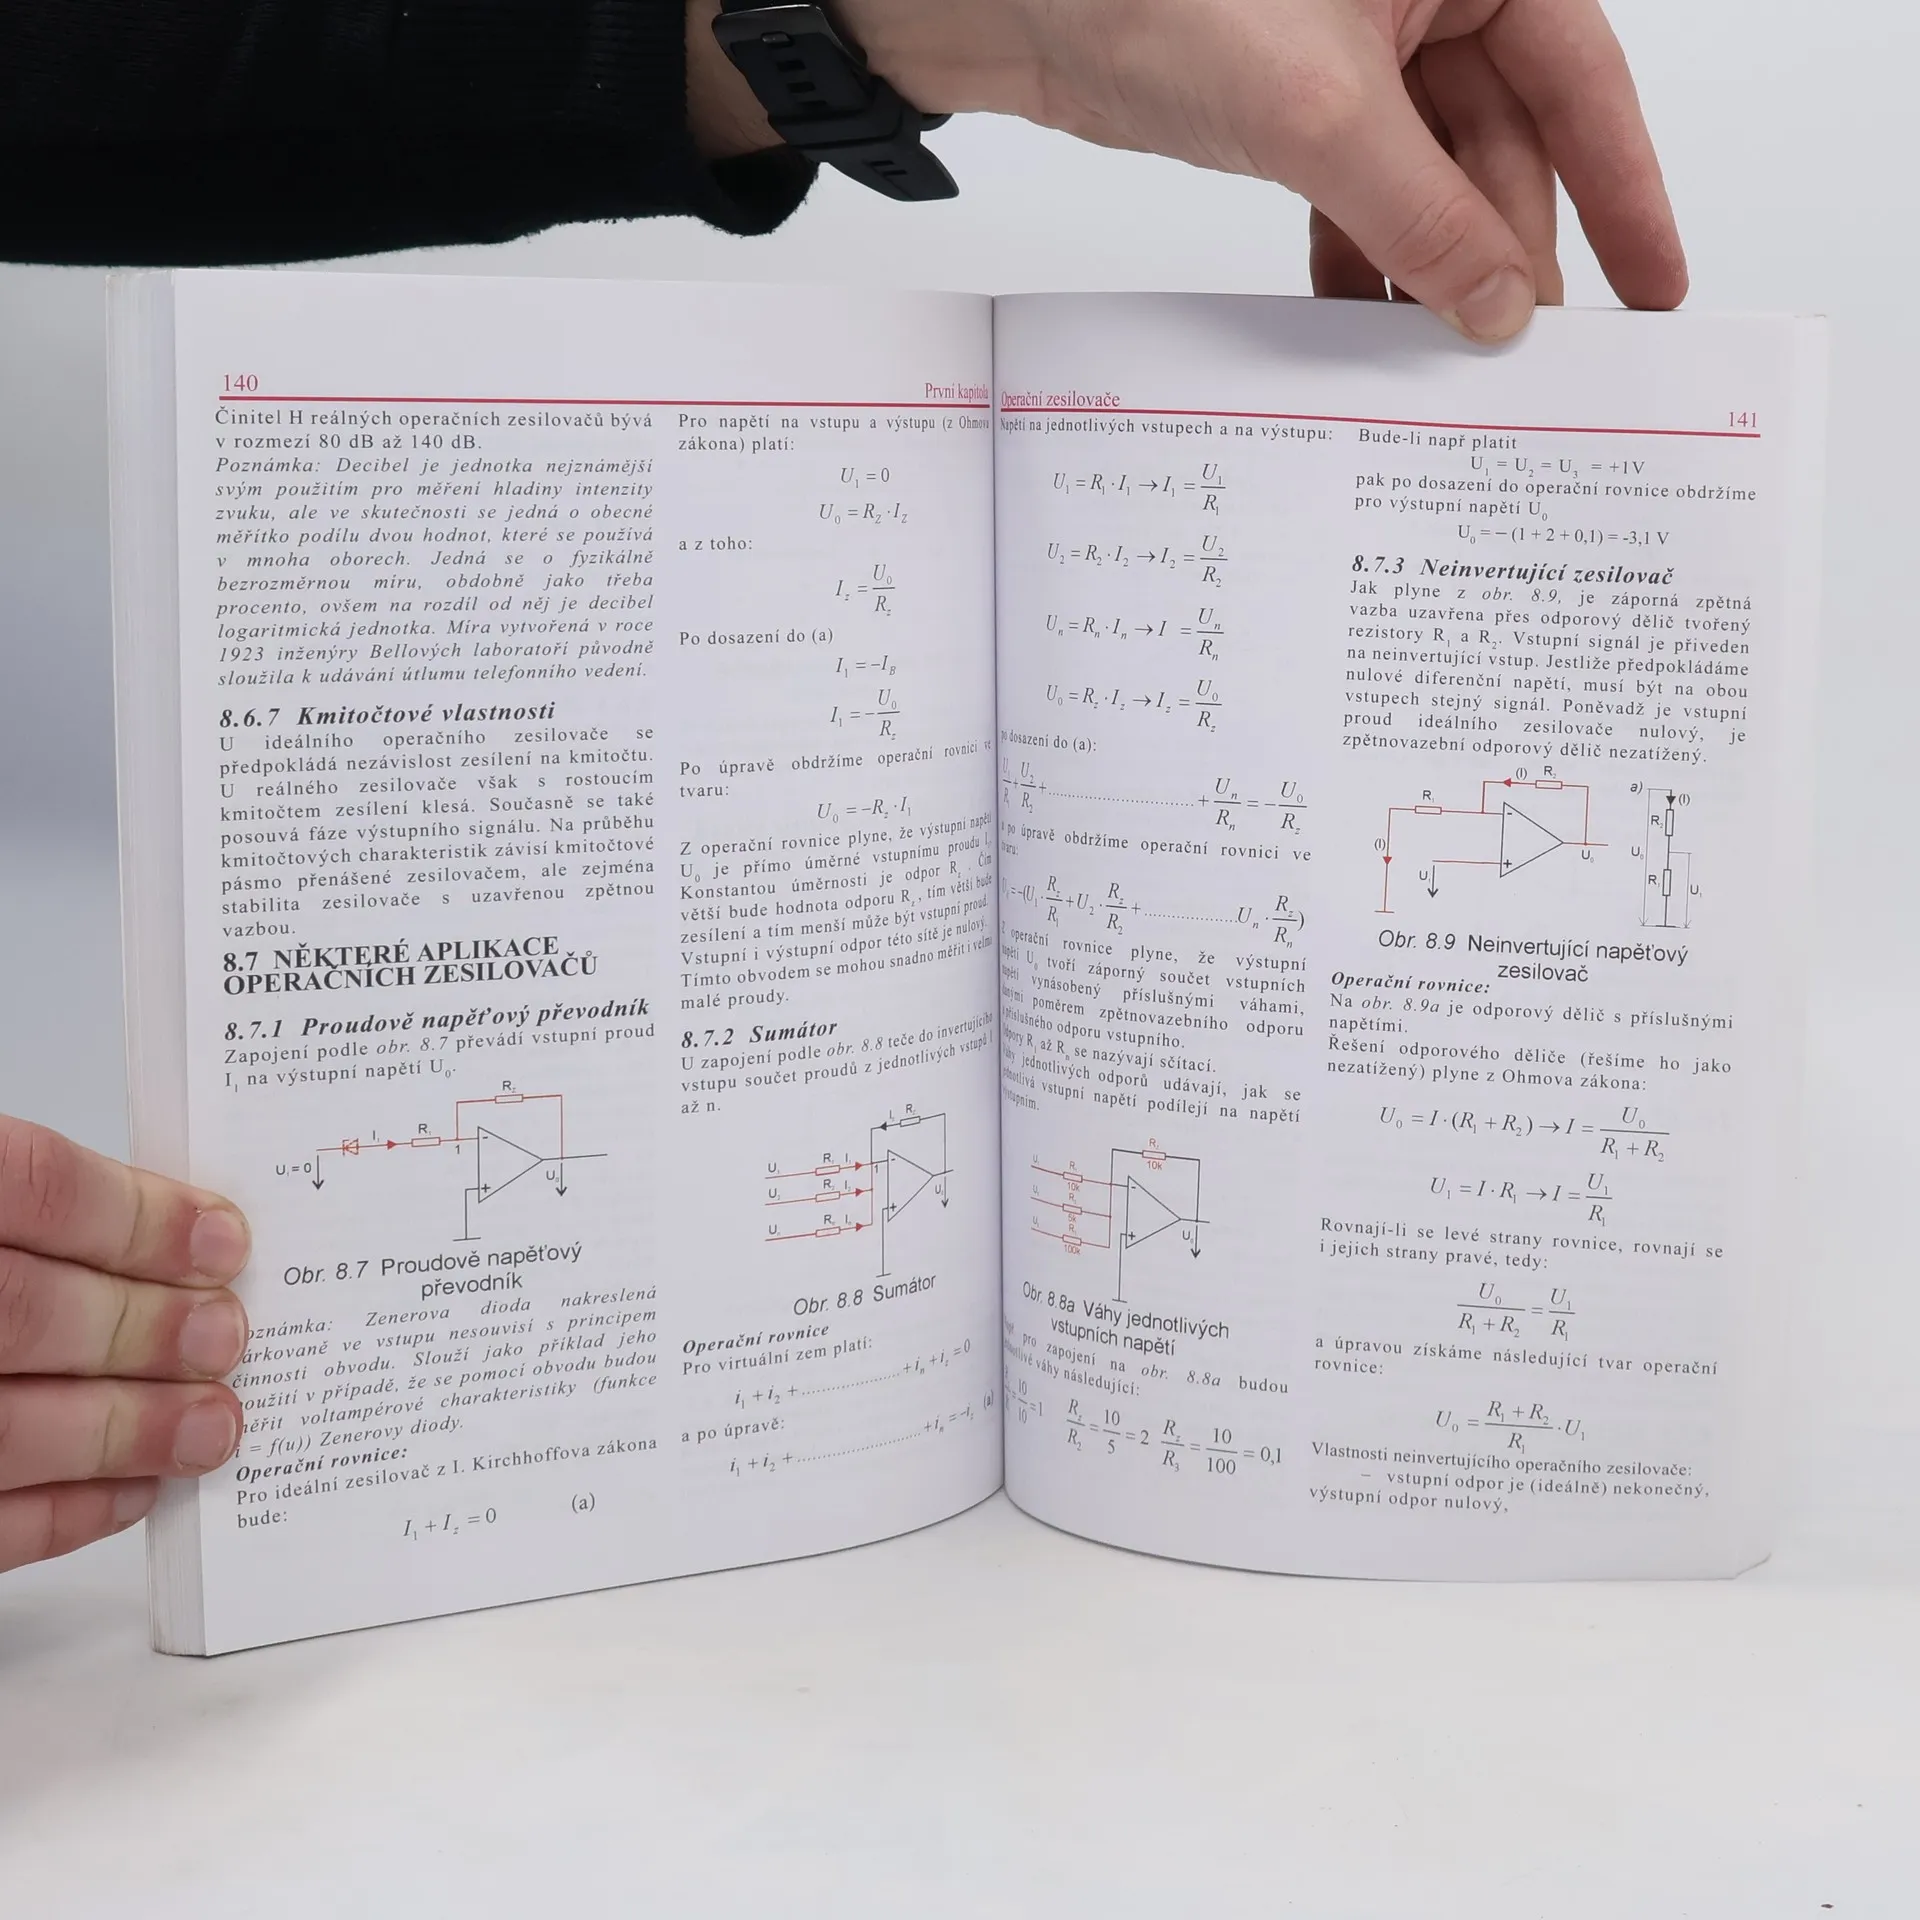 140
První kapitola
Činitel H reálných operačních zesilovačů bývá
v rozmezí 80 dB až 140 dB.
Poznámka: Decibel je jednotka nejznámější
svým použitím pro měření hladiny intenzity
zvuku, ale ve skutečnosti se jedná o obecné
měřítko podílu dvou hodnot, které se používá
v mnoha oborech. Jedná se o fyzikálně
bezrozměrnou míru, obdobně jako třeba
procento, ovšem na rozdíl od něj je decibel
logaritmická jednotka. Míra vytvořená v roce
1923 inženýry Bellových laboratoří původně
sloužila k udávání útlumu telefonního vedení.
8.6.7 Kmitočtové vlastnosti
U ideálního operačního zesilovače se
předpokládá nezávislost zesílení na kmitočtu.
U reálného zesilovače však s rostoucím
kmitočtem zesílení klesá. Současně se také
posouvá fáze výstupního signálu. Na průběhu
kmitočtových charakteristik závisí kmitočtové
pásmo přenášené zesilovačem, ale zejména
stabilita zesilovače s uzavřenou zpětnou
vazbou.
8.7 NĚKTERÉ APLIKACE
OPERAČNÍCH ZESILOVAČŮ
8.7.1 Proudově napěťový převodník
Zapojení podle obr. 8.7 převádí vstupní proud
I₁ na výstupní napětí U₀.
R_z
I₁ R₁
1
U₁=0
U₀
Obr. 8.7 Proudově napěťový
převodník
Zenerova dioda nakreslená
ve vstupu nesouvisí s principem
činnosti obvodu. Slouží jako příklad jeho
v případě, že se pomocí obvodu budou
voltampérové charakteristiky (funkce
i = f(u)) Zenerovy diody.
Operační rovnice:
Pro ideální zesilovač z I. Kirchhoffova zákona
bude:
I₁ + I_z = 0 (a)
Pro napětí na vstupu a výstupu (z Ohmova
zákona) platí:
U₁ = 0
U₀ = R_Z · I_Z
a z toho:
I_z = U₀ / R_z
Po dosazení do (a)
I₁ = −I_B
I₁ = − U₀ / R_z
Po úpravě obdržíme operační rovnici ve
tvaru:
U₀ = −R_z · I₁
Z operační rovnice plyne, že výstupní napětí
U₀ je přímo úměrné vstupnímu proudu I₁.
Konstantou úměrnosti je odpor R_z. Čím
větší bude hodnota odporu R_z, tím větší bude
zesílení a tím menší může být vstupní proud.
Vstupní i výstupní odpor této sítě je nulový.
Tímto obvodem se mohou snadno měřit i velmi
malé proudy.
8.7.2 Sumátor
U zapojení podle obr. 8.8 teče do invertujícího
vstupu součet proudů z jednotlivých vstupů 1
až n.
I_z R_z
U₁ R₁ I₁ 1
U₂ R₂ I₂
U_n R_n I_n
U₀
Obr. 8.8 Sumátor
Operační rovnice
Pro virtuální zem platí:
i₁ + i₂ +....................+ i_n + i_z = 0
a po úpravě:
i₁ + i₂ +....................+ i_n = −i_z (a)
Operační zesilovače
141
Napětí na jednotlivých vstupech a na výstupu:
U₁ = R₁ · I₁ → I₁ = U₁ / R₁
U₂ = R₂ · I₂ → I₂ = U₂ / R₂
U_n = R_n · I_n → I = U_n / R_n
U₀ = R_z · I_z → I_z = U₀ / R_z
po dosazení do (a):
U₁ / R₁ + U₂ / R₂ +..............................+ U_n / R_n = − U₀ / R_z
po úpravě obdržíme operační rovnici ve
tvaru:
U₀ = −(U₁ · R_z / R₁ + U₂ · R_z / R₂ +...................U_n · R_z / R_n)
Z operační rovnice plyne, že výstupní
napětí U₀ tvoří záporný součet vstupních
napětí vynásobený příslušnými váhami,
danými poměrem zpětnovazebního odporu
a příslušného odporu vstupního.
Odpory R₁ až R_n se nazývají sčítací.
Váhy jednotlivých odporů udávají, jak se
jednotlivá vstupní napětí podílejí na napětí
výstupním.
R_z
10k
10k
5k
100k
U₀
Obr. 8.8a Váhy jednotlivých
vstupních napětí
pro zapojení na obr. 8.8a budou
váhy následující:
10 / 10 = 1 R_z / R₂ = 10 / 5 = 2 R_z / R₃ = 10 / 100 = 0,1
Bude-li např platit
U₁ = U₂ = U₃ = +1V
pak po dosazení do operační rovnice obdržíme
pro výstupní napětí U₀
U₀ = − (1 + 2 + 0,1) = -3,1 V
8.7.3 Neinvertující zesilovač
Jak plyne z obr. 8.9, je záporná zpětná
vazba uzavřena přes odporový dělič tvořený
rezistory R₁ a R₂. Vstupní signál je přiveden
na neinvertující vstup. Jestliže předpokládáme
nulové diferenční napětí, musí být na obou
vstupech stejný signál. Poněvadž je vstupní
proud ideálního zesilovače nulový, je
zpětnovazební odporový dělič nezatížený.
(I) R₂
R₁
(I)
U₁
U₀
a)
(I)
R₂
U₀
R₁
U₁
Obr. 8.9 Neinvertující napěťový
zesilovač
Operační rovnice:
Na obr. 8.9a je odporový dělič s příslušnými
napětími.
Řešení odporového děliče (řešíme ho jako
nezatížený) plyne z Ohmova zákona:
U₀ = I · (R₁ + R₂) → I = U₀ / (R₁ + R₂)
U₁ = I · R₁ → I = U₁ / R₁
Rovnají-li se levé strany rovnice, rovnají se
i jejich strany pravé, tedy:
U₀ / (R₁ + R₂) = U₁ / R₁
a úpravou získáme následující tvar operační
rovnice:
U₀ = (R₁ + R₂) / R₁ · U₁
Vlastnosti neinvertujícího operačního zesilovače:
– vstupní odpor je (ideálně) nekonečný,
výstupní odpor nulový,